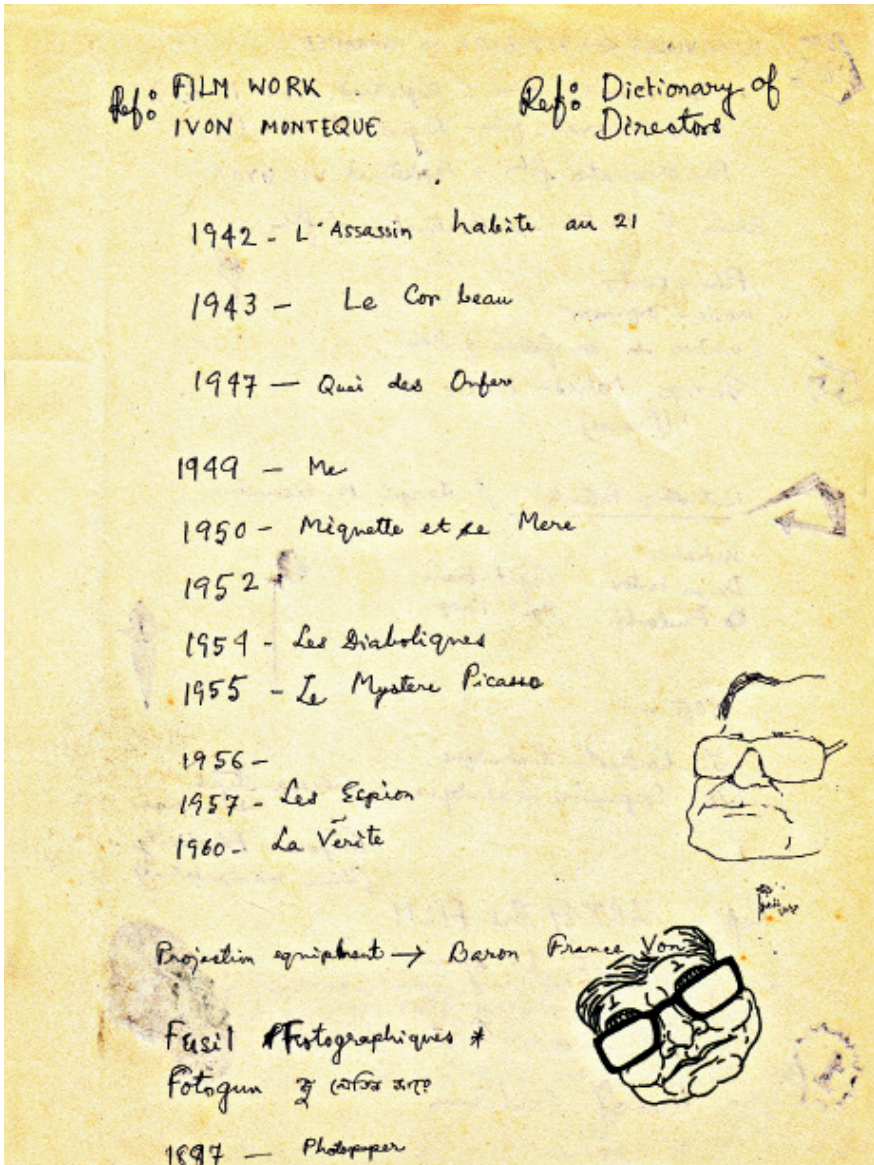 Ref: FILM WORK
IVON MONTEQUE
Ref: Dictionary of
Directors
1942 - L'Assassin habite au 21
1943 - Le Cor beau
1947 - Quai des Orfev
1949 - Me
1950 - Miquette et se Mere
1952 -
1954 - Les Diaboliques
1955 - Le Mystere Picasso
1956 -
1957 - Les Espion
1960 - La Verite
Projection equipment → Baron France Von
Fusil Fotographiques *
Fotogun
1887 - Photopaper